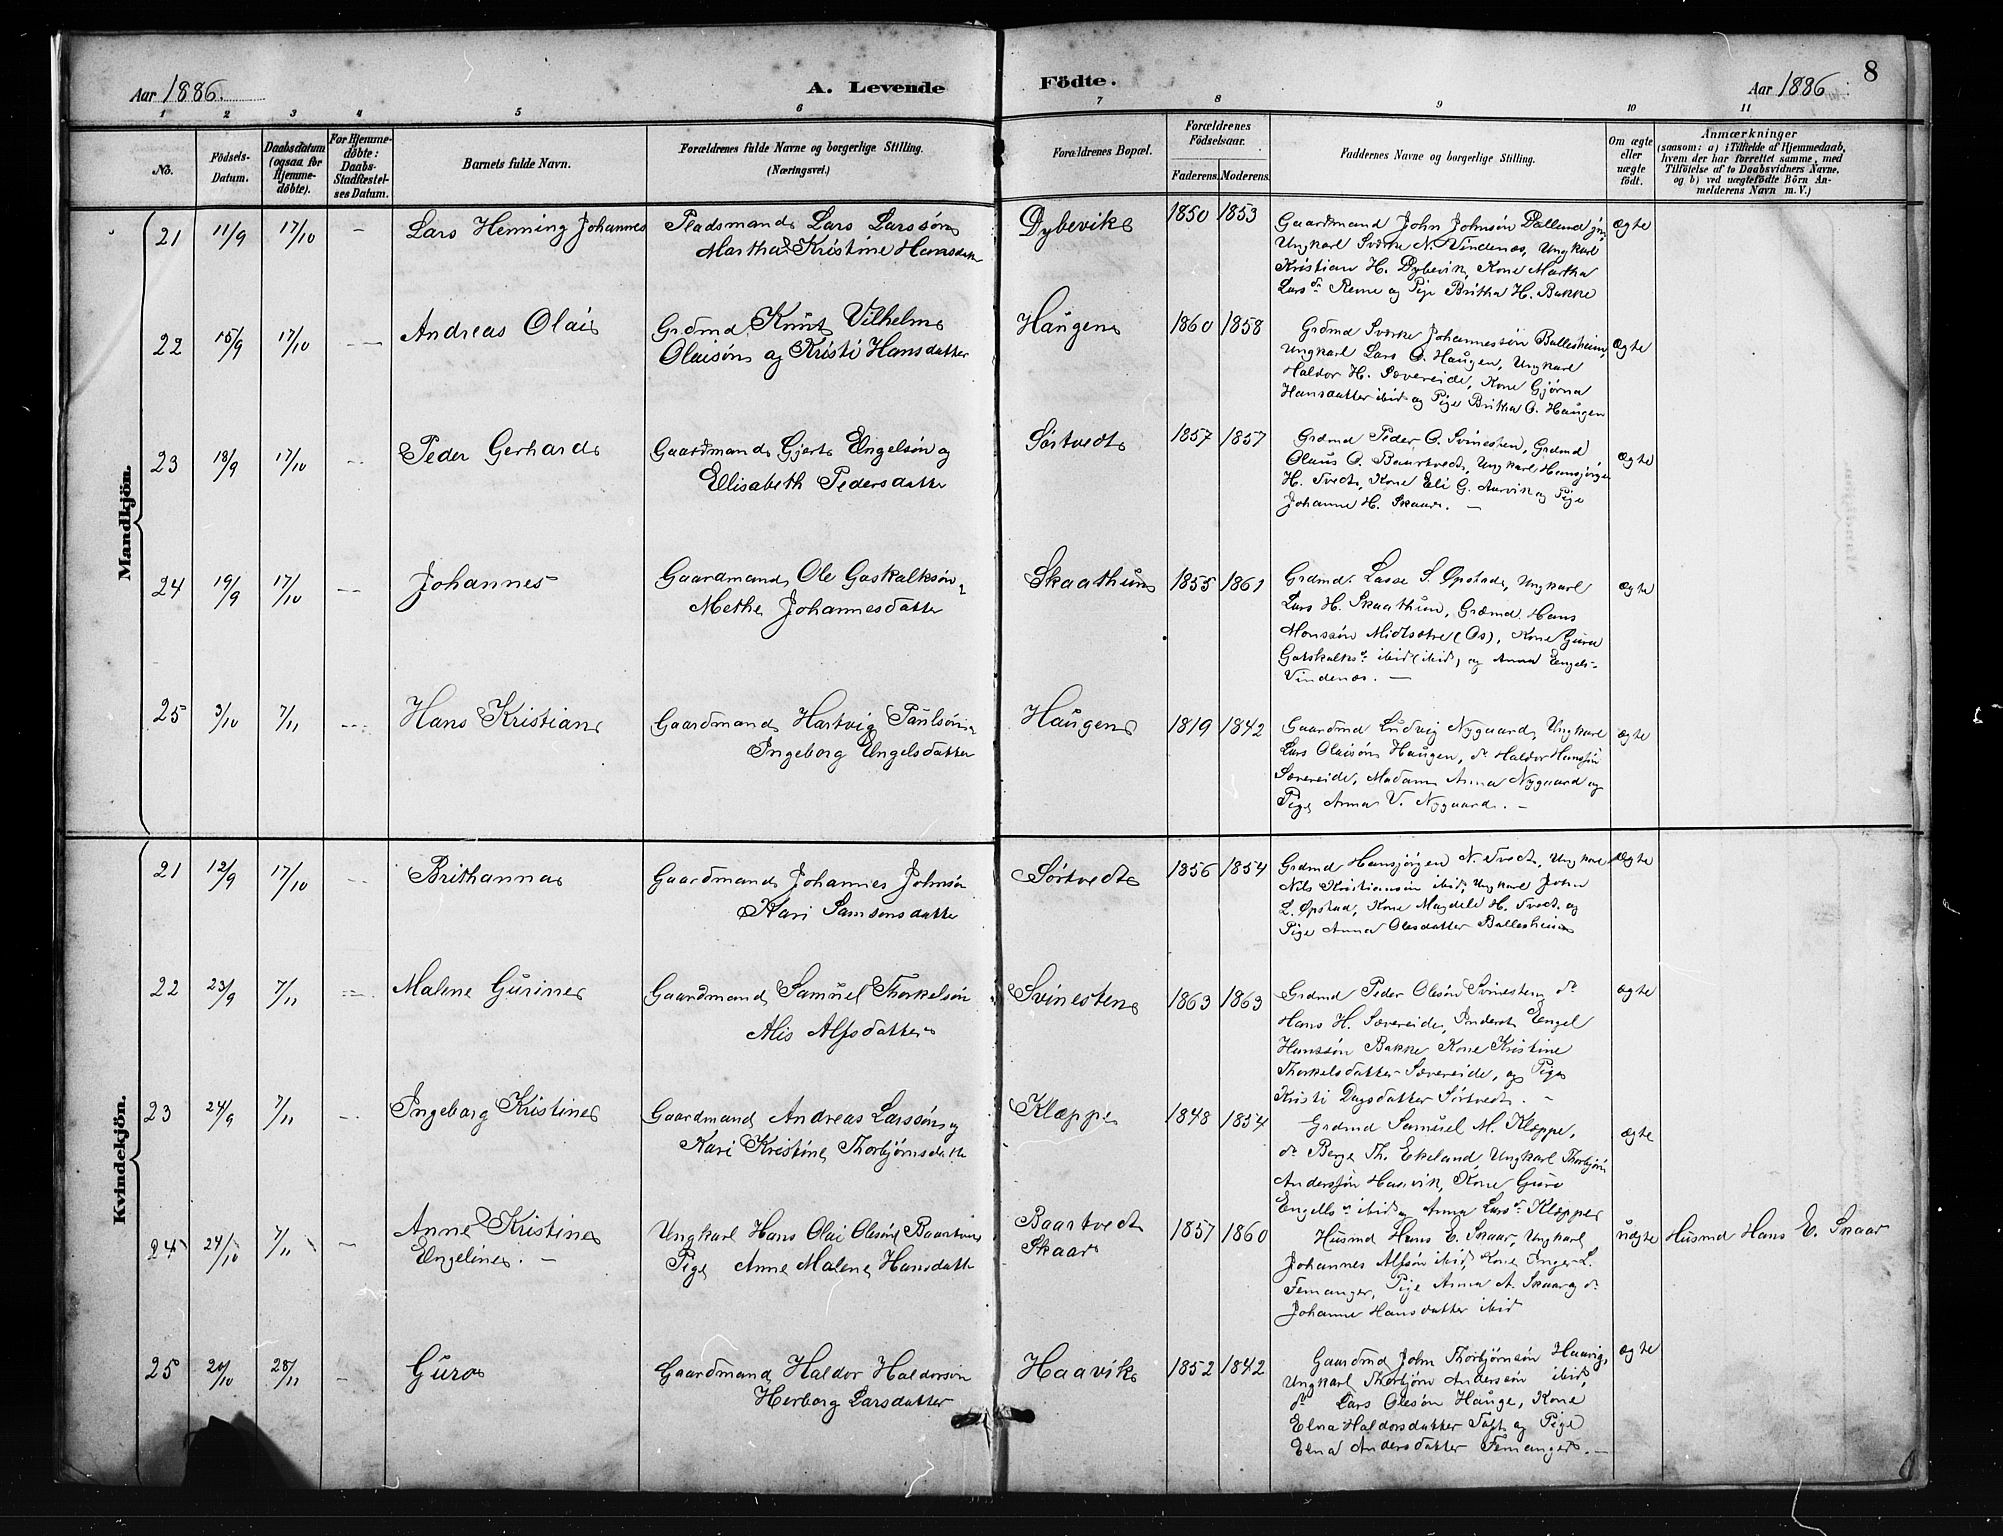 Aar 1886. A. Levende Födte. Aar 1886. 8
1 2 3 4 5 6 7 8 9 10 11
No. Födsels-Datum. Daabsdatum (ogsaa for Hjemmedöbte). For Hjemmedöbte: Daabs-Stadfæstelses Datum. Barnets fulde Navn. Forældrenes fulde Navne og borgerlige Stilling. (Næringsvei.) Forældrenes Bopæl. Forældrenes Födselsaar. Faderens. Moderens. Faddernes Navne og borgerlige Stilling. Om ægte eller uægte födt. Anmærkninger (saasom: a) i Tilfælde af Hjemmedaab, hvem der har forrettet samme, med Tilföielse af to Daabsvidners Navne, og b) ved uægtefödte Börn Anmelderens Navn m. V.)
Mandkjön.
21 11/9 17/10 – Lars Henning Johannes Pladsmand Lars Larssön Dybevik 1850 1853 Gaardmand John Johnsön Dalland jn, ægte
Martha Kristine Hansdatter Ungkarl Sværke N. Vindenæs, Ungkarl
Kristian H. Dybevik, Kone Martha
Lars dr Revne og Pige Britha H. Bakke
22 15/9 17/10 Andreas Olai Grdmd Knut Vilhelm Haugen 1860 1858 Grdmd Sværke Johannessön Ballesheim, ægte
Olaisön og Kristi Hansdatter Ungkarl Lars O. Haugen, Ungkarl
Haldor H. Sævereide, Kone Gjörna
Hansdatter ibid og Pige Britha O. Haugen
23 18/9 17/10 Peder Gerhard Gaardmand Gjert Engelsön og Sörtvedt 1857 1857 Grdmd Peder O. Svinesten, Grdmd ægte
Ellisabeth Pedersdatter Olaus O. Baartvedt, Ungkarl Hansjörgen
H. Tvedt, Kone Eli G. Aarvik og Pige
Johanne H. Skaar. –
24 19/9 17/10 Johannes Gaardmand Ole Gaskalksön Skaathun 1855 1861 Grdmd. Lasse S. Opstad, Ungkarl ægte
Methe Johannesdatter Lars H. Skaathun, Grdmd Hans
Monssön Midtsætre (Os), Kone Guru
Gotskalks dr ibid (ibid) og Anna Engels-
Vindenæs. –
25 3/10 7/11 Hans Kristian Gaardmand Hartvig Paulsön Haugen 1819 1842 Gaardmd Ludvig Nygaard, Ungkarl ægte
Ingeborg Engelsdatter Lars Olaisön Haugen, do Haldor Hanssön
Sævereide, Madam Anna Nygaard og
Pige Anna V. Nygaard. –
Kvindekjön.
21 12/9 17/10 Brithanna Gaardmand Johannes Johnsön Sörtvedt 1856 1854 Grdmd Hansjörgen N. Tvedt, Ungkarl ægte
Kari Samsonsdatter Nils Kristiansön ibid, Ungkarl John
L. Opstad, Kone Magdele H. Tvedt og
Pige Anna Olesdatter Ballesheim
22 23/9 7/11 Malene Gurine Gaardmand Samuel Thorkelsön Svinesten 1863 1863 Grdmd Peder Olesön Svinesten, do ægte
Alis Alfsdatter Hans H. Sævereide, Inderst Engel
Hanssön Bakke Kone Kristine
Thorkelsdatter Sævereide, og Pige
Kristi Dagsdatter Sörtvedt. –
23 24/9 7/11 Ingeborg Kristine Gaardmand Andreas Larssön og Klæppe 1848 1854 Grdmd Samuel M. Klæppe, ægte
Kari Kristine Thorbjörnsdatter do Berge Th. Ekeland, Ungkarl Thorbjörn
Anderssön Haavik, Kone Guro
Engels dr ibid og Anna Lars dr Klæppe
24 24/10 7/11 – Anne Kristine Ungkarl Hans Olai Olesön Baartvedt Baartvedt 1857 1860 Husmd Hans E. Skaar, Ungkarl uægte Husmd Hans E. Skaar
Engeline. – Pige Anne Malene Hansdatter Skaar Johannes Alfsön ibid, Kone Inger L.
Femanger, Pige Anna A. Skaar og do
Johanne Hansdatter ibid
25 20/10 28/11 – Guro Gaardmand Haldor Haldorsön Haavik 1852 1842 Gaardmd John Thorbjörnsön Haavig, ægte
Herborg Larsdatter Ungkarl Thorbjörn Anderssön ibid,
do Lars Olesön Hauge, Kone
Elna Haldorsdatter Toft og Pige
Elna Andersdatter Femanger. –